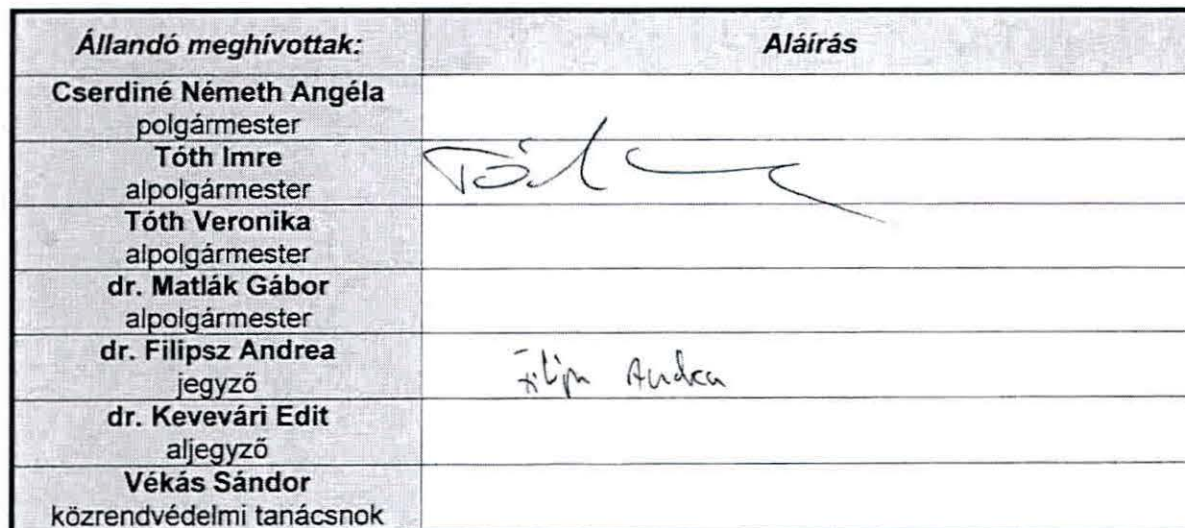 Állandó meghívottak: Aláírás
Cserdiné Németh Angéla
polgármester
Tóth Imre
alpolgármester
Tóth Veronika
alpolgármester
dr. Matlák Gábor
alpolgármester
dr. Filipsz Andrea
jegyző
Filipsz Andrea
dr. Kevevári Edit
aljegyző
Vékás Sándor
közrendvédelmi tanácsnok